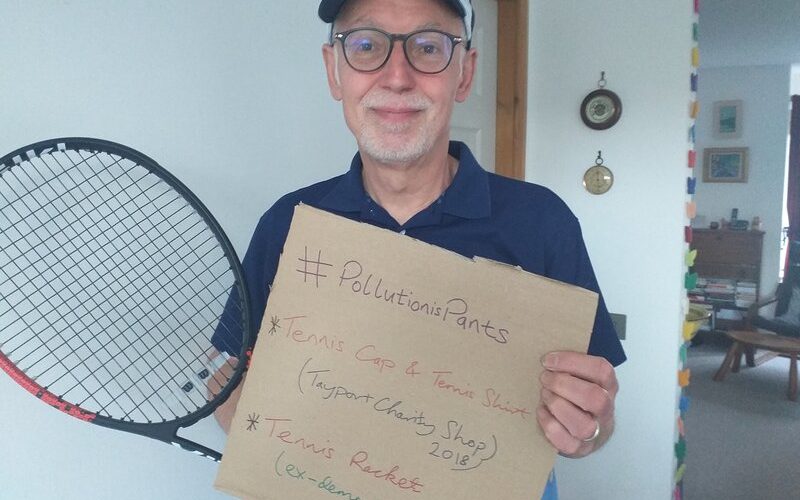 #PollutionisPants
* Tennis Cap & Tennis Shirt
(Tayport Charity Shop)
2018
* Tennis Racket
(ex-demo